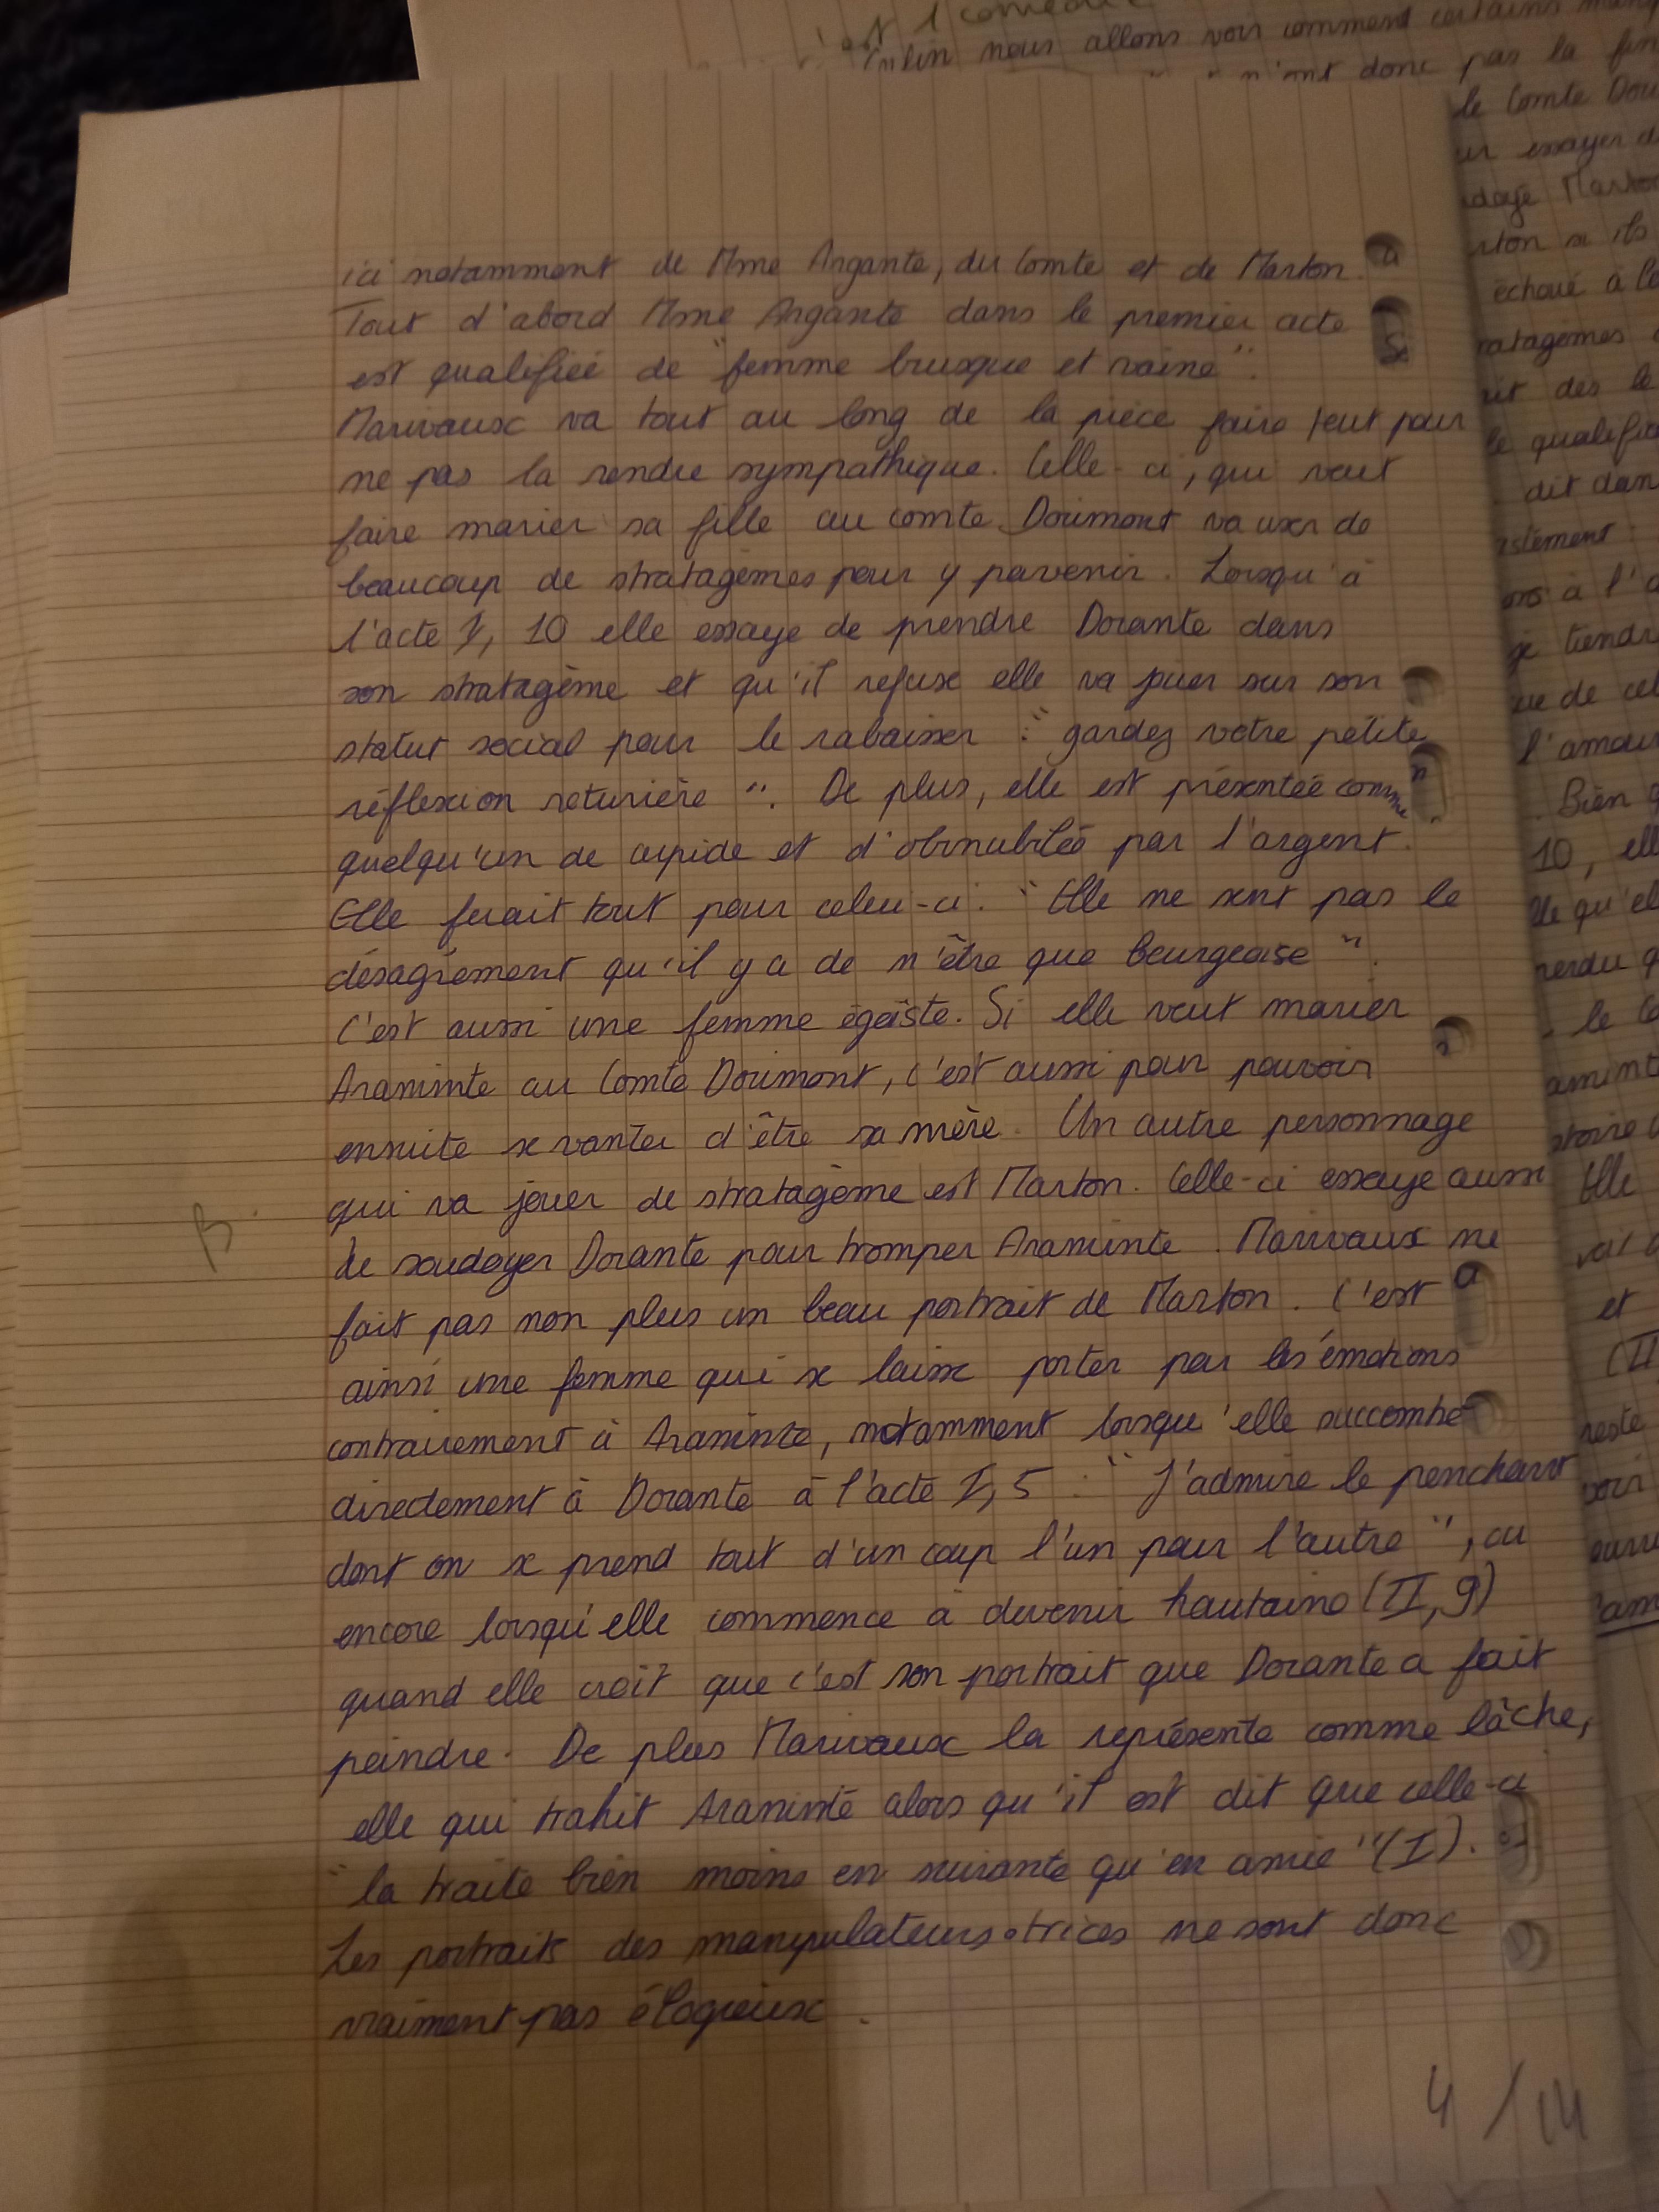 est 1 comédie
Enfin nous allons voir comment certains
n'ont donc pas la
ici notamment de Mme Argante, du Comte et de Marton.
Tout d'abord Mme Argante dans le premier acte
est qualifiée de "femme brusque et vaine".
Marivaux va tout au long de la pièce faire tout pour
ne pas la rendre sympathique. Celle-ci, qui veut
faire marier sa fille au comte Dorimont va user de
beaucoup de stratagèmes pour y parvenir. Lorsqu'à
l'acte I, 10 elle essaye de prendre Dorante dans
son stratagème et qu'il refuse elle va jouer sur son
statut social pour le rabaisser : "gardez votre petite
réflexion roturière". De plus, elle est présentée comme
quelqu'un de cupide et d'obnubilée par l'argent.
Elle ferait tout pour celui-ci : "Elle ne sent pas le
désagrément qu'il y a de n'être que bourgeoise".
C'est aussi une femme égoïste. Si elle veut marier
Araminte au Comte Dorimont, c'est aussi pour pouvoir
ensuite se vanter d'être sa mère. Un autre personnage
qui va jouer de stratagème est Marton. Celle-ci essaye aussi
de soudoyer Dorante pour tromper Araminte. Marivaux ne
fait pas non plus un beau portrait de Marton. C'est
ainsi une femme qui se laisse porter par les émotions
contrairement à Araminte, notamment lorsqu'elle succombe
directement à Dorante à l'acte I, 5 : "J'admire le penchant
dont on se prend tout d'un coup l'un pour l'autre", ou
encore lorsqu'elle commence à devenir hautaine (II, 9)
quand elle croit que c'est son portrait que Dorante a fait
peindre. De plus Marivaux la représente comme lâche,
elle qui trahit Araminte alors qu'il est dit que celle-ci
"la traite bien moins en suivante qu'en amie" (I).
Les portraits des manipulateurs.trices ne sont donc
vraiment pas élogieux.
B.
4/14
le Comte
essayer
Marton
échoué à
dès le
dit dans
à l'
de cet
l'amour
Bien
10, elle
qu'el
perdu
le
Elle
et
(II
reste
voir